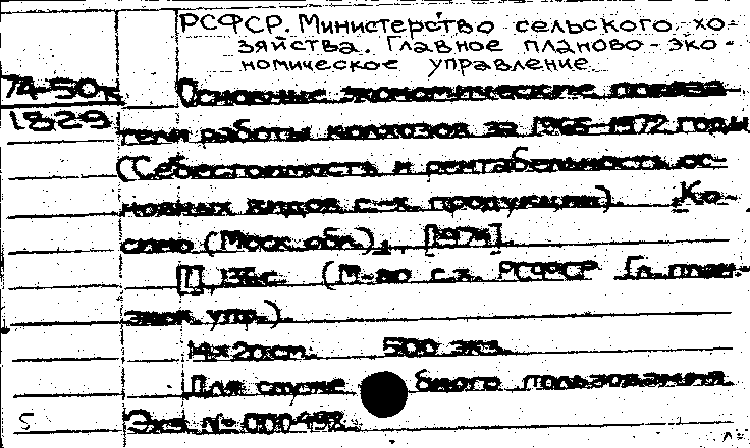 РСФСР. Министерство сельского хо-
зяйства. Главное планово-эко-
номическое управление.
74-50к
Основные экономические показа-
1829
тели работы колхозов за 1965-1972 годы
(Себестоимость и рентабельность ос-
новных видов с.-х. продукции). Ко-
сино (Моск. обл.), [1974].
[1], 136 с. (М-во с.х. РСФСР. Гл. план.-
экон. упр.).
500 экз.
Для служебного пользования.
5
Экз. № 000498.